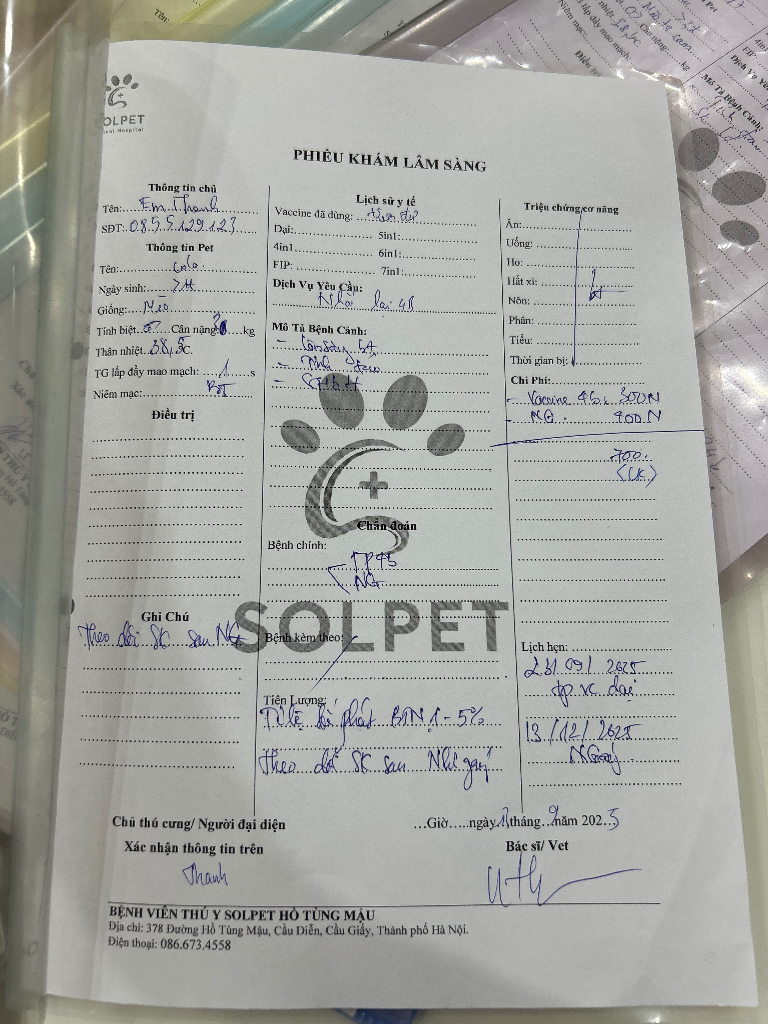 SOLPET
PHIẾU KHÁM LÂM SÀNG
Thông tin chủ
Tên: Em Thanh
SĐT: 0855129123
Thông tin Pet
Tên:
Ngày sinh: 7M
Giống: Mèo
Tính biệt: Cân nặng: kg
Thân nhiệt: 38,5c
TG lấp đầy mao mạch: 1 s
Niêm mạc: BT
Điều trị
Ghi Chú
Theo dõi SK sau NG
Lịch sử y tế
Vaccine đã dùng:
Dại: 5in1:
4in1 6in1:
FIP: 7in1:
Dịch Vụ Yêu Cầu:
Nhắc lại 4B
Mô Tả Bệnh Cảnh:
Chẩn đoán
Bệnh chính:
NG
Bệnh kèm theo:
Tiên Lượng:
Tỉ lệ tái phát BTN 1-5%
Theo dõi SK sau
Triệu chứng cơ năng
Ăn:
Uống:
Ho:
Hắt xì:
Nôn:
Phân:
Tiểu:
Thời gian bị:
Chi Phí:
- Vaccine 300N
- NG. 400N
700.
(CK)
Lịch hẹn:
23/09/2025
vc dại
13/12/2025
Chủ thú cưng/ Người đại diện
Xác nhận thông tin trên
Thanh
...Giờ.....ngày 13 tháng 9 năm 2025
Bác sĩ/ Vet
BỆNH VIÊN THÚ Y SOLPET HỒ TÙNG MẬU
Địa chỉ: 378 Đường Hồ Tùng Mậu, Cầu Diễn, Cầu Giấy, Thành phố Hà Nội.
Điện thoại: 086.673.4558